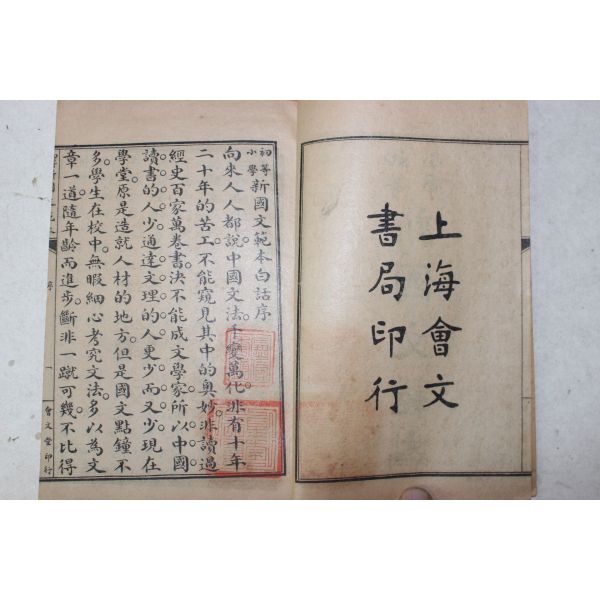 上海會文
書局印行
初等小學新國文範本白話序
向來人人都說中國文法千變萬化。非有十年
二十年的苦工。不能窺見其中的奧妙。非讀過
經史百家萬卷書。決不能成文學家。所以中國
讀書的人少。通達文理的人更少而又少。現在
學堂原是造就人材的地方。但是國文點鐘不
多。學生在校中。無暇細心考究文法。多以為文
章一道。隨年齡而進步。斷非一蹴可幾。不比得
序
一
會文堂印行